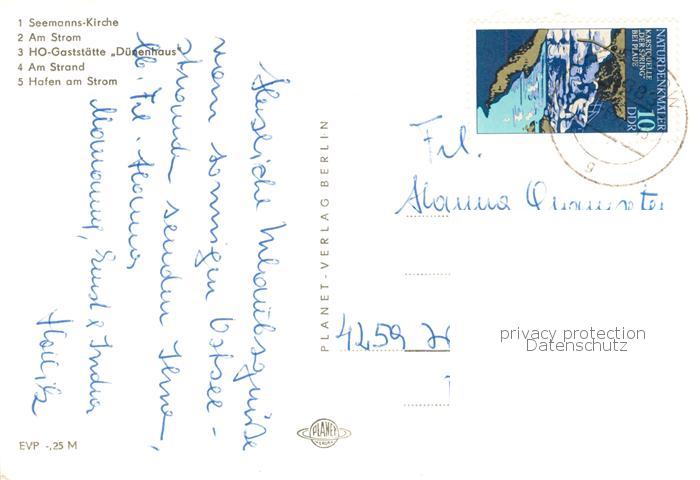 1 Seemanns-Kirche
2 Am Strom
3 HO-Gaststätte „Dünenhaus"
4 Am Strand
5 Hafen am Strom
Herzliche Urlaubsgrüße
vom sonnigen Ostsee-
strande senden Ihnen,
lb. Frl. Hanna
Marianne, Ernst &
EVP -,25 M
PLANET-VERLAG BERLIN
PLANET
VERLAG
NATURDENKMÄLER
KARSTQUELLE
„DER SPRING"
BEI PLAUE
10
DDR
Frl.
Hanna
4259
privacy protection
Datenschutz